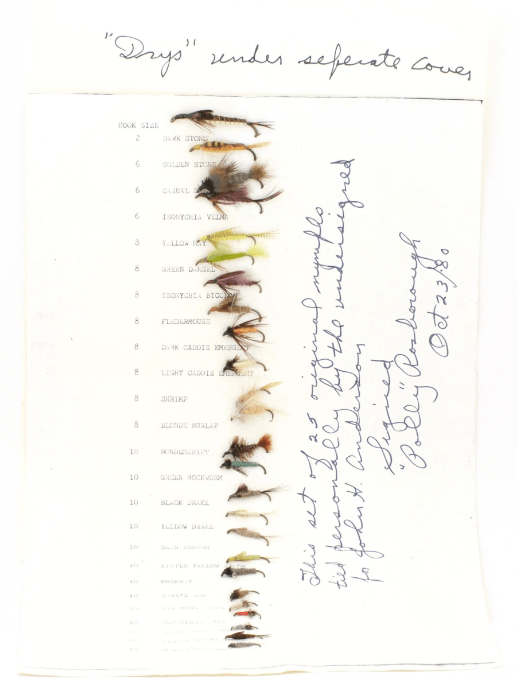 "Drys" under seperate cover
HOOK SIZE
2 DARK STONE
6 GOLDEN STONE
6 CASUAL
6 ISONYCHIA VELMA
8 YELLOW MAY
8 GREEN DAMSEL
8 ISONYCHIA BICOLOR
8 FLEDERMOUSE
8 DARK CADDIS EMERGENT
8 LIGHT CADDIS EMERGENT
8 SHRIMP
8 BLONDE BURLAP
10 NONDESCRIPT
10 GREEN ROCKWORM
10 BLACK DRAKE
10 YELLOW DRAKE
10
10 LITTLE YELLOW
16
This set of 25 original nymphs
tied personally by the undersigned
for John H. Anderson
Signed
"Polly" Rosborough
Oct 23/80